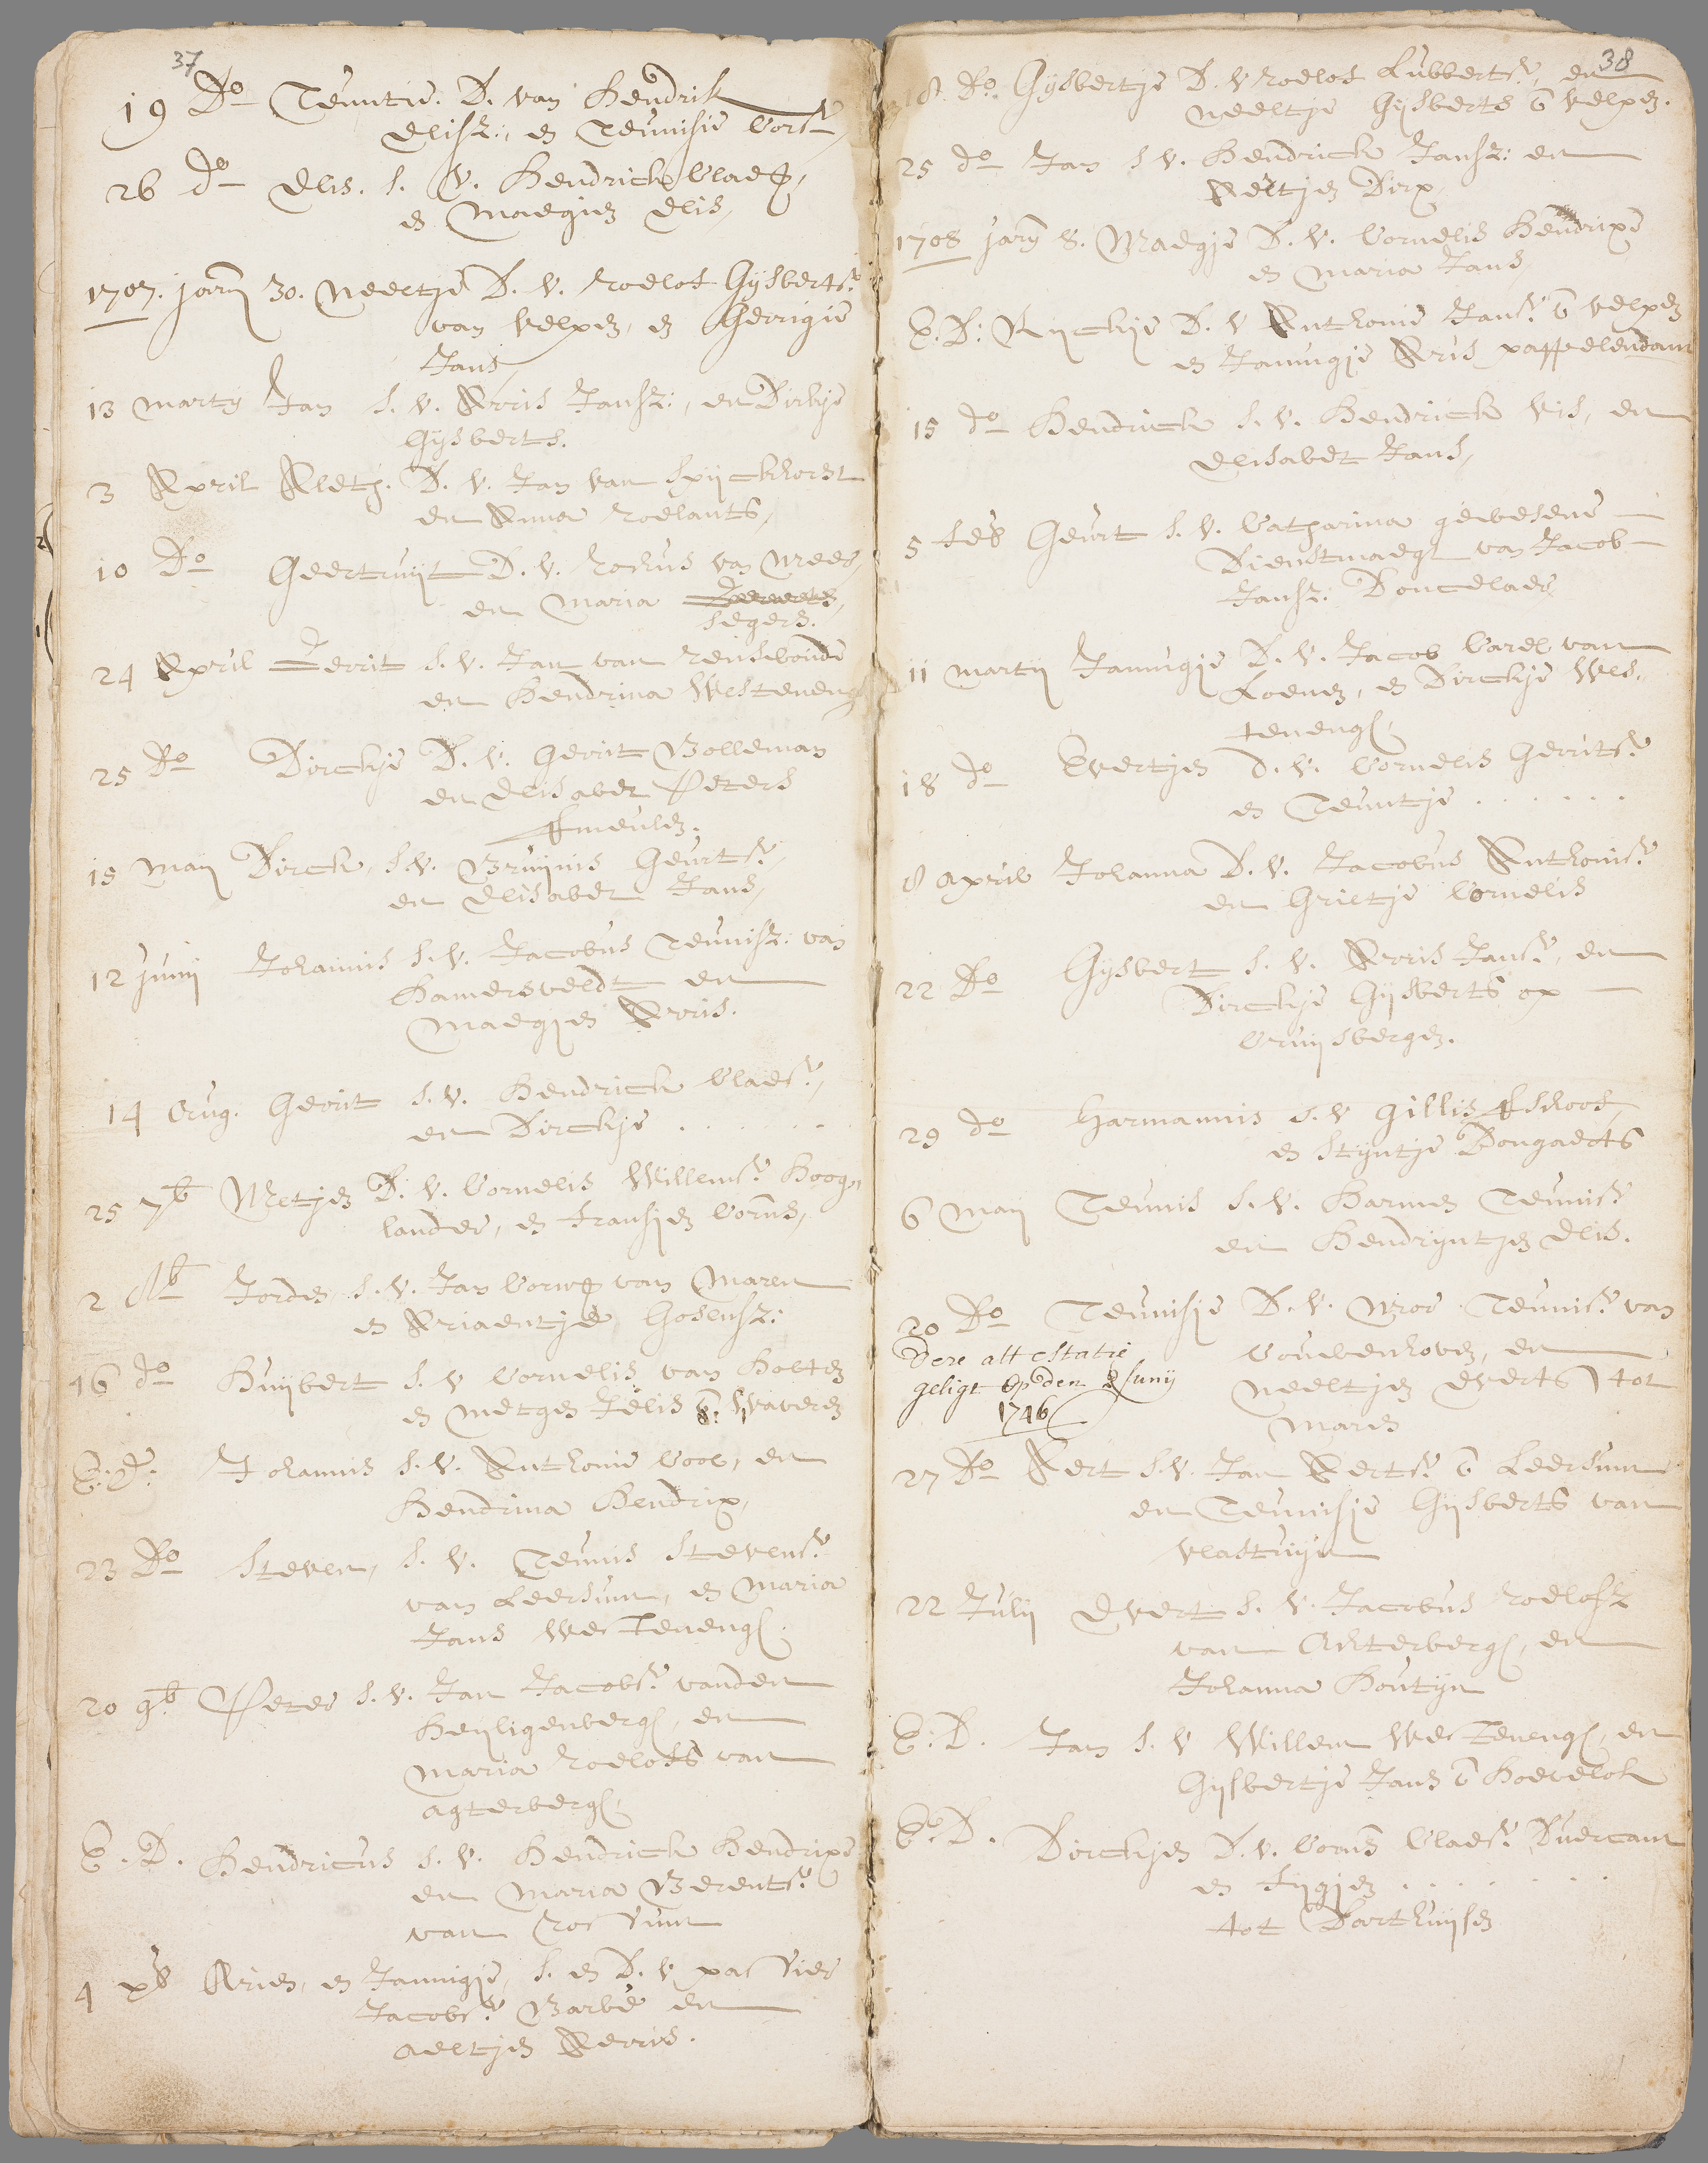 37
19 Do Teuntie. D. van Hendrik
Elisz:, en Teunisie Cors
26 do Elis. S. v. Hendrick Claeß,
en Maegien Elis,
1707. janry 30. Neeltje D. v. Roelof Gijsbertsz
van Velpen, en Gerrigie
Jans,
13 Marty Jan S. v. Arris Jansz:, en Dirkje
Gijsberts.
3 April Aletj. D. v. Jan van Spijckhorst
en Anna Roelants,
10 Do Geertruijt D. v. Rochus van Meer,
en Maria
Segers.
24 April Gerrit S. v. Jan van Rensewoude
en Hendrina Westeneng
25 Do Dirckje D. v. Gerrit Bolleman
en Elisabet Peters
Smeulen.
15 Maij Dirck, S. v. Bruijnis Geurtsz,
en Elisabet Jans,
12 Junij Johannis S. v. Jacobus Teunisz: van
Hamersveldt en
Maegjen Arris.
14 Aug. Gerrit S. v. Hendrick Claesz,
en Dirckje . . . . . .
25 7b Metjen D. v. Cornelis Willemsz Hoog,
lander, en Fransjen Corns,
2 8b Jorden S. v. Jan Corneß van Maren
en Ariaentje Gosensz:
16 do Huijbert S. v. Cornelis van Holten
en Metgen Jelis Waveren
E: D: Johannis S. v. Anthonie Cool, en
Hendrina Hendrix,
23 Do Steven, S. v. Teunis Stevensz
van Leersum, en Maria
Jans Westeneng.
20 9b Peter S. v. Jan Jacobsz vanden
Heyligenberg, en
Maria Roelofs van
Agterberg,
E. D. Hendricus S. v. Hendrick Hendrixe
en Maria Berentsz
van Rossum
4 xb Arien, en Jannigje, S. en D. v. passier
Jacobsz Barbé en
Aeltjen Aerris.
38
8 Do. Gijsbertje D. v Roelof Lubbertsz, en
Neeltje Gijsberts Velpen.
25 do Jan S v. Hendrick Jansz: en
Aeltjen Dirx,
1708 jary 8. Maegje D. v. Cornelis Hendrixe
en Maria Jans
E. D: Rijckje D. v Anthonie Jansz Velpen
en Jannigje Arris pappelendam
15 do Hendrick S. v. Hendrick Vis, en
Elisabet Jans,
5 feb Geurt S. v. Catharina gewesene
Dienstmaegt van Jacob
Jansz: Doncelaer,
11 Martij Jannigje D. v. Jacob Carel van
Loenen, en Dirckje Wes.
teneng,
18 do Evertjen D. v. Cornelis Gerritsz
en Teuntje . . . . . .
8 April Johanna D. v. Jacobus Anthonisz
en Grietje Cornelis
22 Do Gijsbert S. v. Arris Jansz, en
Dirckje Gijsberts op
Cruijsbergen.
29 do Harmannis S. v Gillis Schoof,
en Stijntje Bongaerts
6 Maij Teunis S. v. Harmen Teunisz
en Hendrijntjen Elis.
20 Do Teunisje D. v. Mor Teunisz van
Couwenhoven, en
Neeltjen Everts tot
Maren
Dese attestatie
geligt Op den 2 Junij
1746
27 Do Aert S. v. Jan Aertsz Leersum
en Teunisje Gijsberts van
Vlastuijn
22 Julij Evert S. v. Jacobus Roelofsz
van Achterberg, en
Johanna Houtijn
E. D. Jan S. v Willem Westeneng, en
Gijsbertje Jans Hoevelok
E. D. Dirckjen D. v. Corns Claesz Duercant
en Fijgjen . . . . . .
tot Darthuijsen